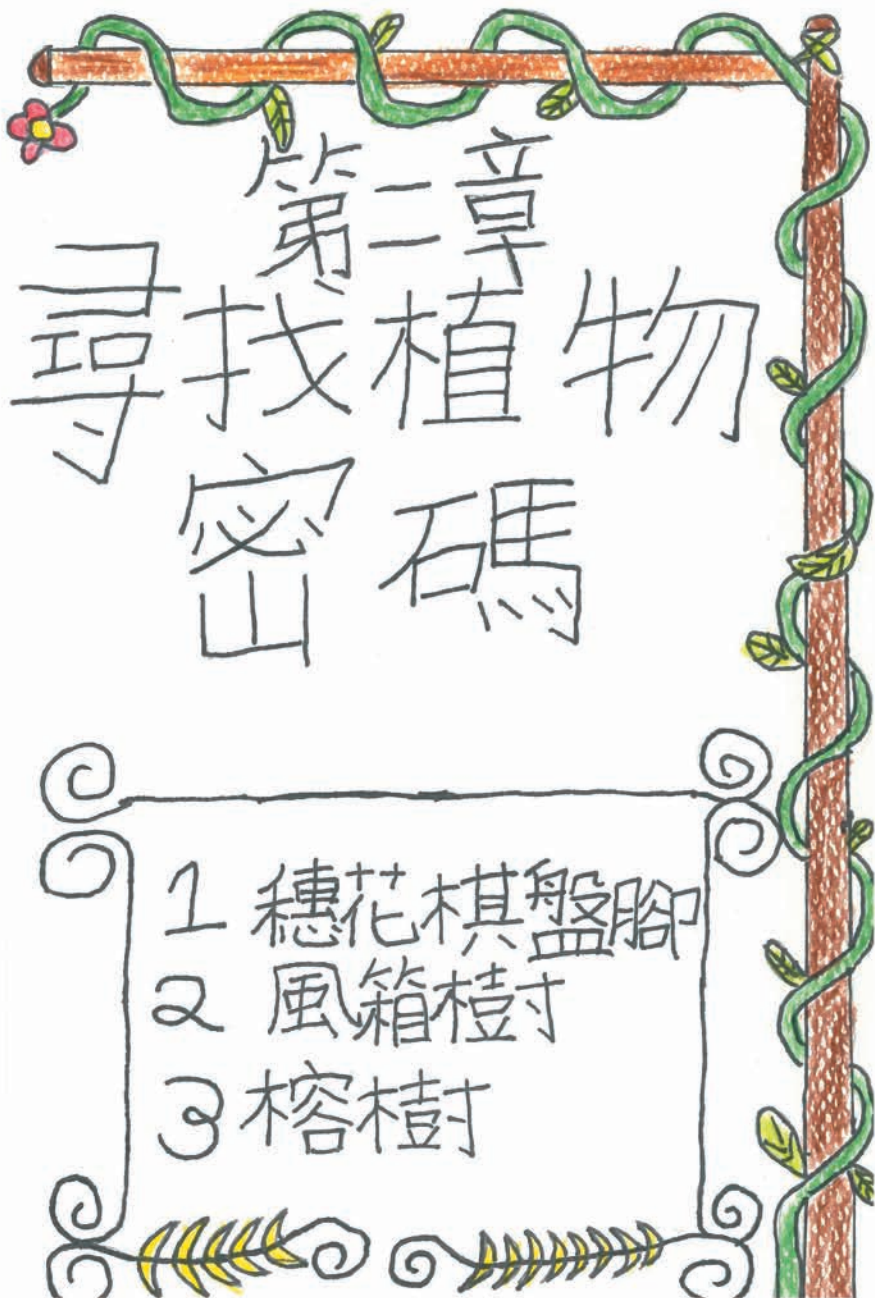 第二章
尋找植物
密碼
1 穗花棋盤腳
2 風箱樹
3 榕樹